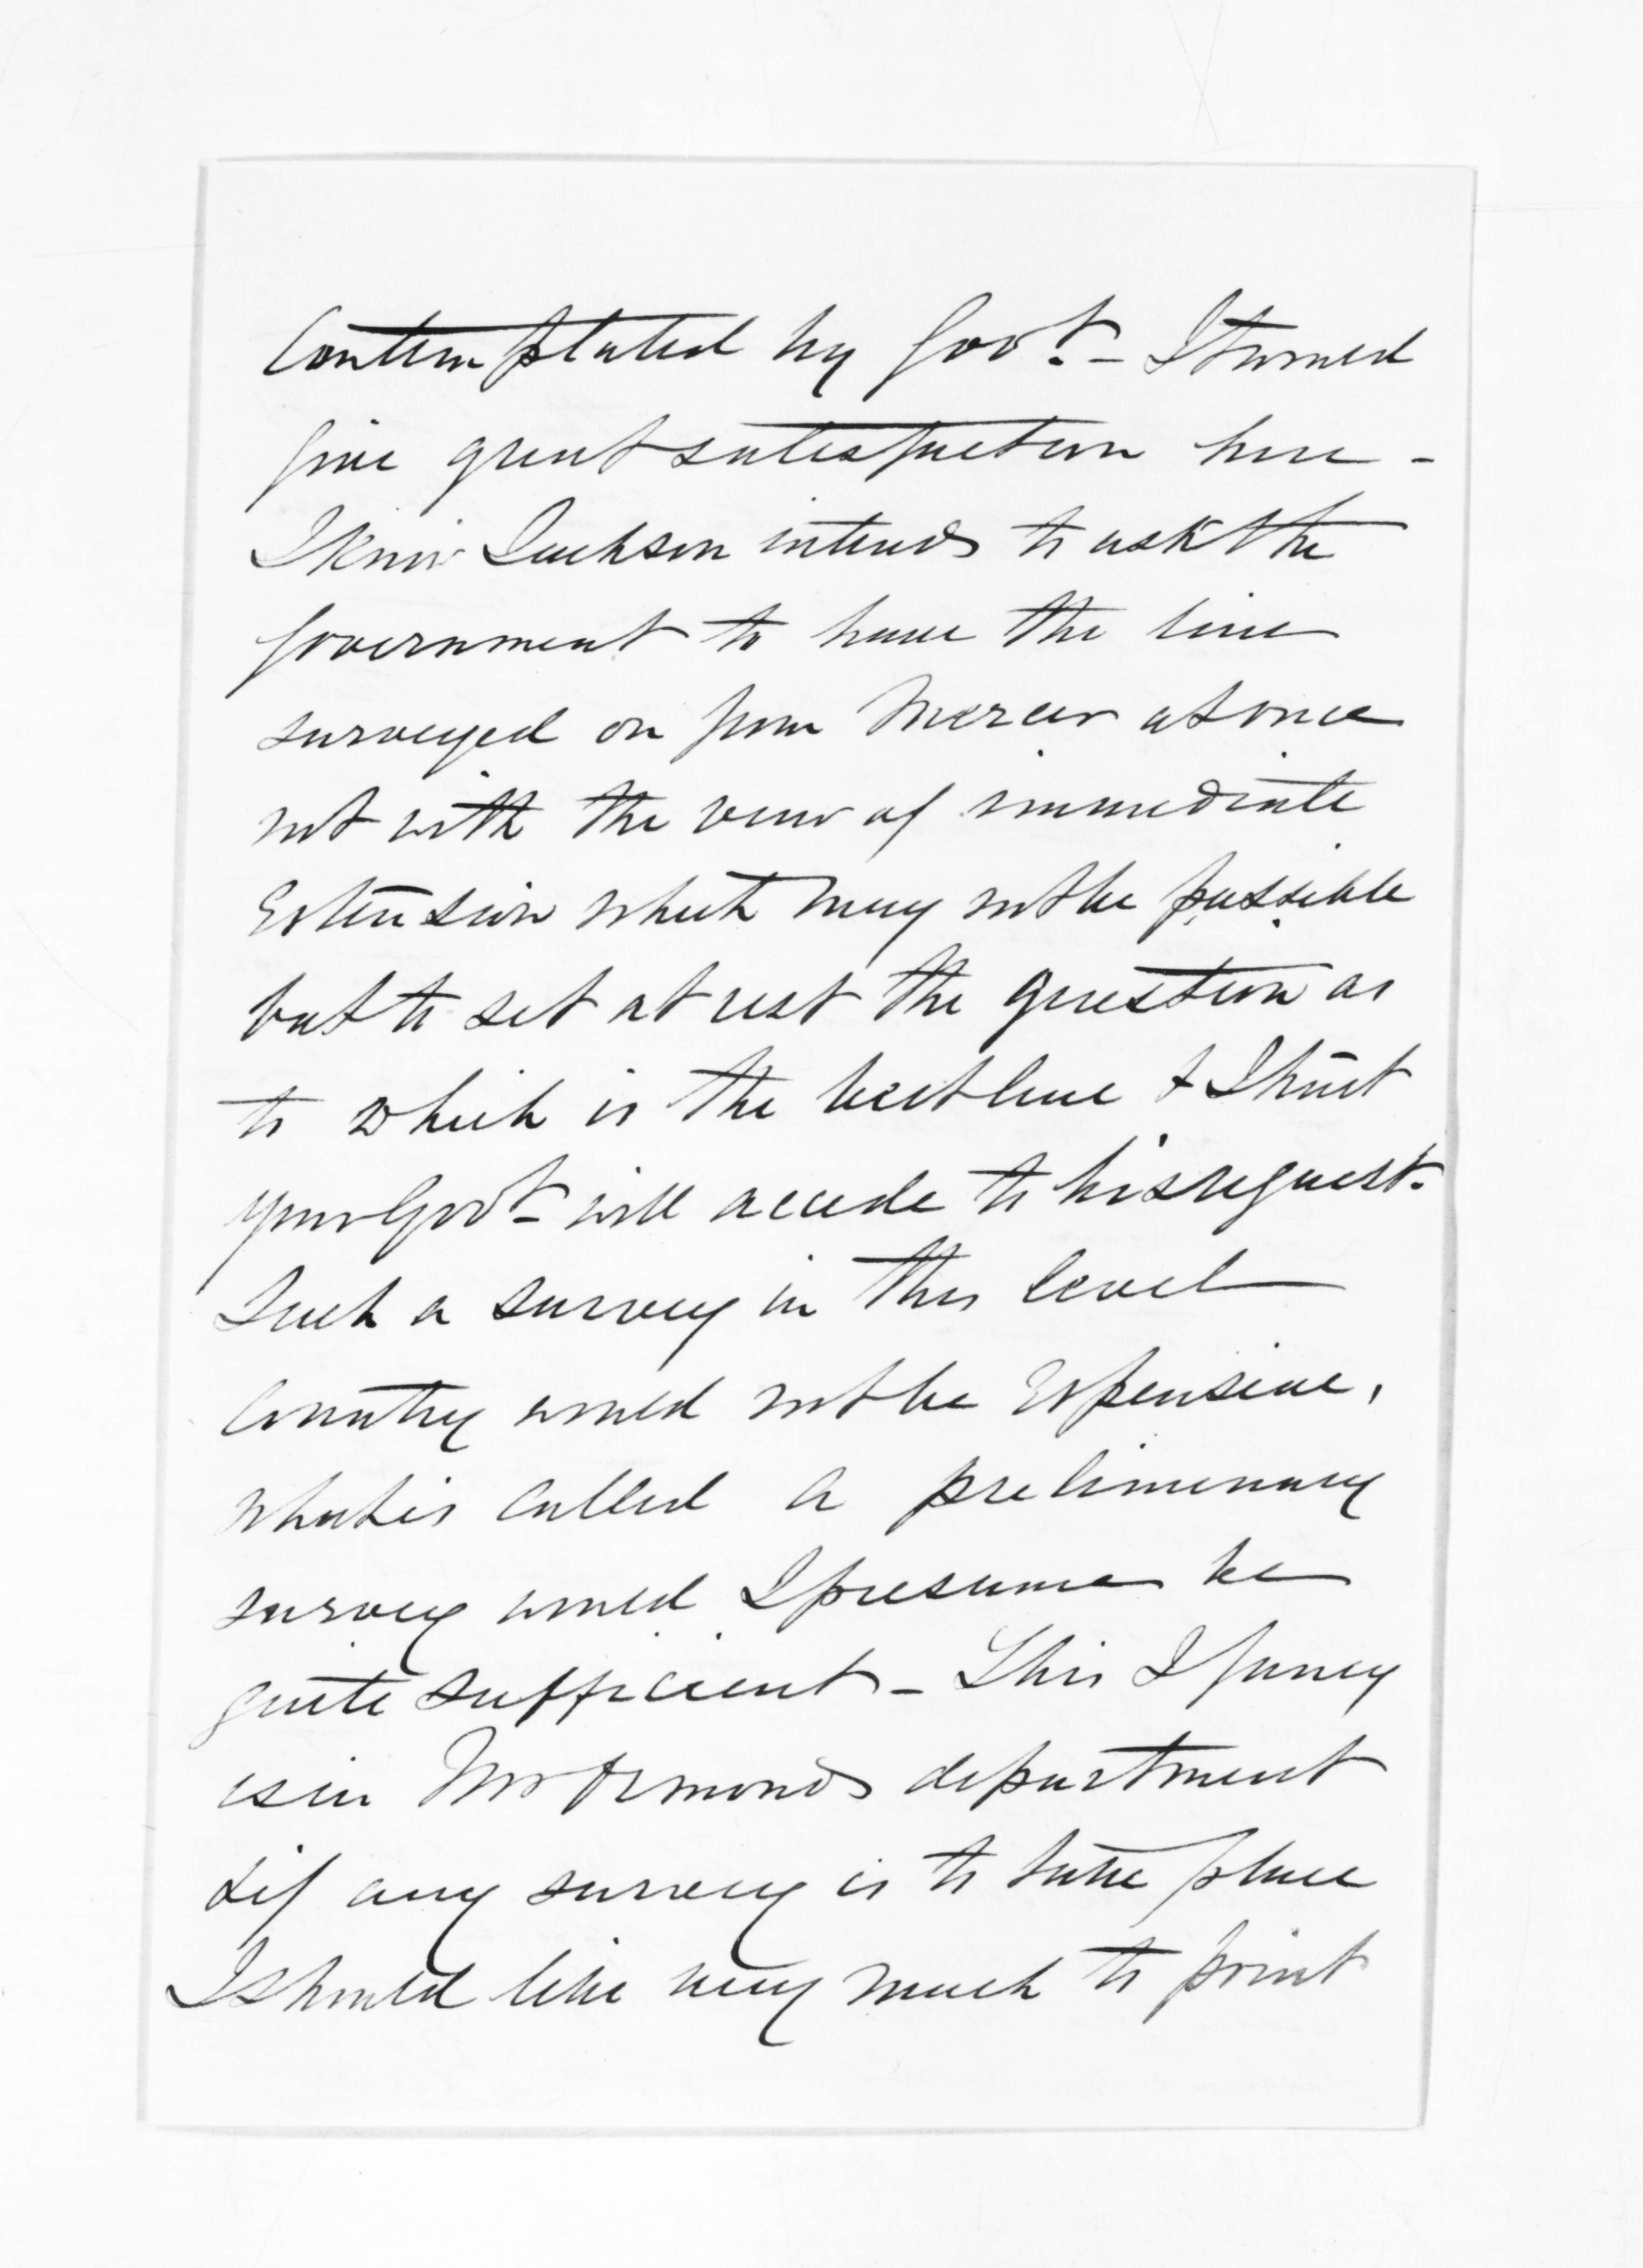 Contemplated by Govt. - It would
give great satisfaction here -
I know Jackson intends to ask the
Government to have the line
surveyed on from Mercer at once
not with the view of immediate
Extension which may not be possible
but to set at rest the question as
to which is the best line & I trust
your Govt - will accede to his request.
Such a survey in this level
Country would not be Expensive,
what is called a preliminary
survey would I presume be
quite sufficient - This I fancy
is in Mr Ormonds department
& if any survey is to take place
I should like very much to point